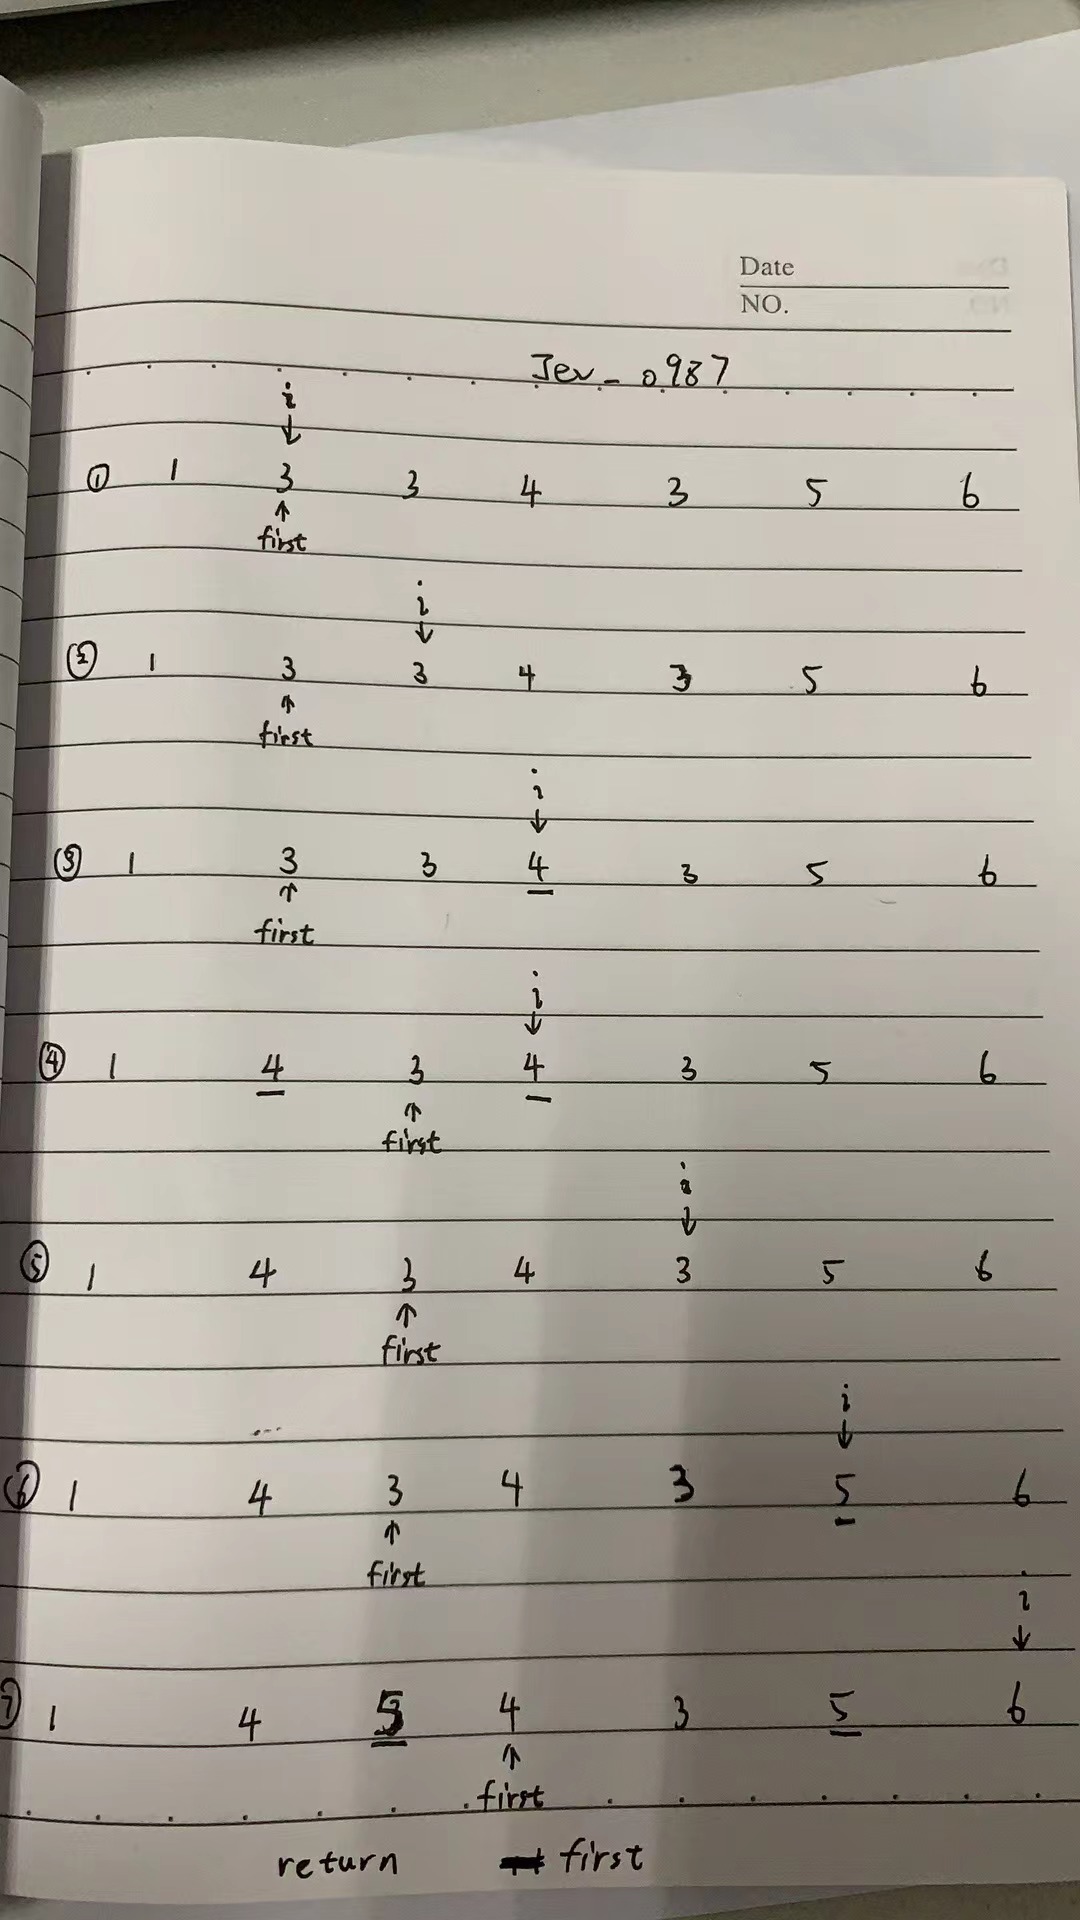 Date
NO.
Jev_0987
i
↓
① 1 3 3 4 3 5 6
↑
first
i
↓
② 1 3 3 4 3 5 6
↑
first
i
↓
③ 1 3 3 4 3 5 6
↑
first
i
↓
④ 1 4 3 4 3 5 6
↑
first
i
↓
⑤ 1 4 3 4 3 5 6
↑
first
i
↓
⑥ 1 4 3 4 3 5 6
↑
first
i
↓
⑦ 1 4 5 4 3 5 6
↑
first
return first